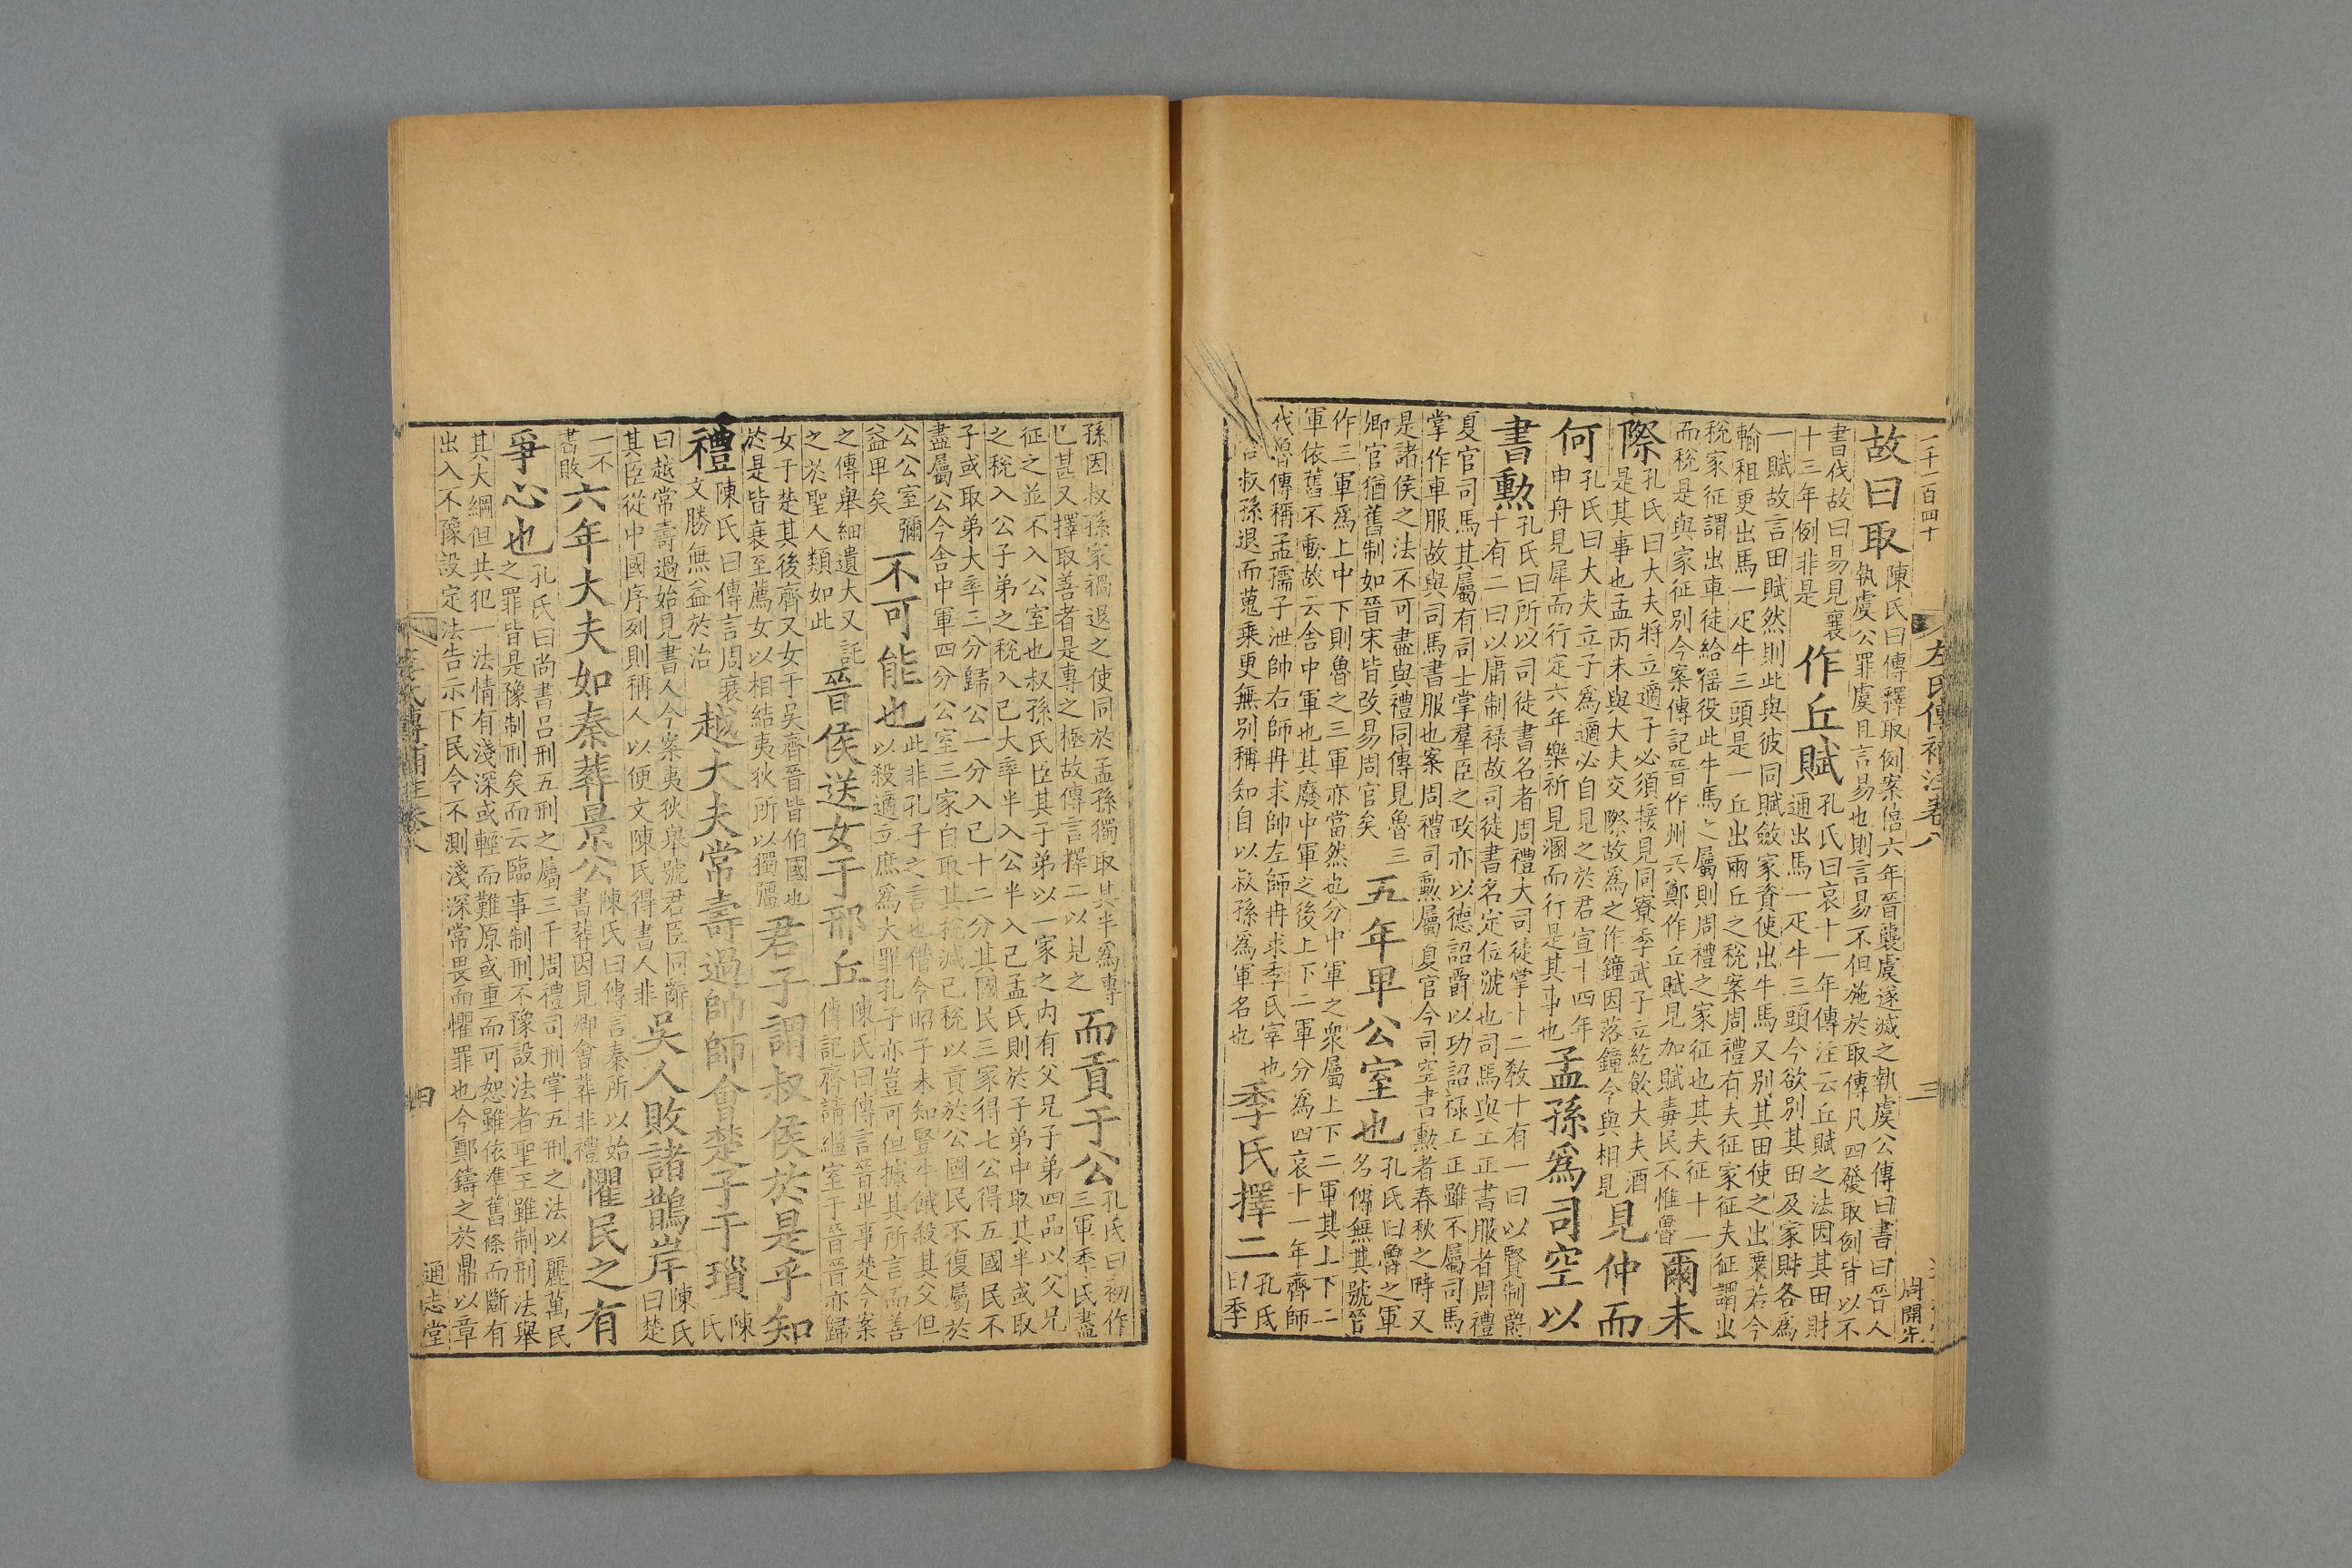 二千一百四十
左氏傳補注卷八
三
周開先
故曰取陳氏曰傳釋取例案僖六年晉襲虞遂滅之執虞公傳曰書曰晉人
執虞公罪虞且言易也則言易不但施於取傳凡四發取例皆以不
書伐故曰易見襄
十三年例非是作丘賦孔氏曰哀十一年傳注云丘賦之法因其田財
通出馬一疋牛三頭今欲別其田及家財各為
一賦故言田賦然則此與彼同賦斂家資使出牛馬又別其田使之出粟若今
輸租更出馬一疋牛三頭是一丘出兩丘之稅案周禮有夫征家征夫征謂出
稅家征謂出車徒給徭役此牛馬之屬則周禮之家征也其夫征十一
而稅是與家征別今案傳記晉作州兵鄭作丘賦見加賦毒民不惟魯爾未
際孔氏曰大夫將立適子必須接見同寮季武子立紇飲大夫酒
是其事也孟丙未與大夫交際故為之作鐘因落鐘今與相見見仲而
何孔氏曰大夫立子為適必自見之於君宣十四年
申舟見犀而行定六年樂祈見溷而行是其事也孟孫為司空以
書勲孔氏曰所以司徒書名者周禮大司徒掌十二教十有一曰以賢制爵
十有二曰以庸制祿故司徒書名定位號也司馬與工正書服者周禮
夏官司馬其屬有司士掌羣臣之政亦以德詔爵以功詔祿工正雖不屬司馬
掌作車服故與司馬書服也案周禮司勲屬夏官今司空書勲者春秋之時又
是諸侯之法不可盡與禮同傳見魯三
卿官猶舊制如晉宋皆改易周官矣五年卑公室也孔氏曰魯之軍
名傳無其號晉
作三軍為上中下則魯之三軍亦當然也分中軍之衆屬上下二軍其上下二
軍依舊不動故云舍中軍也其廢中軍之後上下二軍分為四哀十一年齊師
伐魯傳稱孟孺子泄帥右師冉求帥左師冉求季氏宰也
叔孫退而蒐乘更無別稱知自以叔孫為軍名也季氏擇二孔氏
曰季
孫因叔孫家禍退之使同於孟孫獨取其半為專
已甚又擇取善者是專之極故傳言擇二以見之而貢于公孔氏曰初作
三軍季氏盡
征之並不入公室也叔孫氏臣其子弟以一家之內有父兄子弟四品以父兄
之稅入公子弟之稅入己大率半入公半入己孟氏則於子弟中取其半或取
子或取弟大率三分歸公一分入己十二分其國民三家得七公得五國民不
盡屬公今舍中軍四分公室三家自取其稅減已稅以貢於公國民不復屬於
公公室彌
益卑矣不可能也此非孔子之言也僭今昭子未知豎牛餓殺其父但
以殺適立庶為大罪孔子亦豈可但據其所言而善
之傳舉細遺大又託
之於聖人類如此晉侯送女于邢丘陳氏曰傳言晉卑事楚今案
傳記齊請繼室于晉晉亦歸
女于楚其後齊又女于吳齊晉皆伯國也
於是皆衰至薦女以相結夷狄所以獨彊君子謂叔侯於是乎知
禮陳氏曰傳言周衰
文勝無益於治越大夫常壽過帥師會楚子于瑣陳
氏
曰越常壽過始見書人今案夷狄舉號君臣同辭
其臣從中國序列則稱人以便文陳氏得書人非吳人敗諸鵲岸陳氏
曰楚
一不
書敗六年大夫如秦葬景公陳氏曰傳言秦所以始
書葬因見卿會葬非禮懼民之有
爭心也孔氏曰尚書呂刑五刑之屬三千周禮司刑掌五刑之法以麗萬民
之罪皆是豫制刑矣而云臨事制刑不豫設法者聖王雖制刑法舉
其大綱但共犯一法情有淺深或輕而難原或重而可恕雖依准舊條而斷有
出入不豫設定法告示下民令不測淺深常畏而懼罪也今鄭鑄之於鼎以章
左氏傳補注卷八
四
通志堂